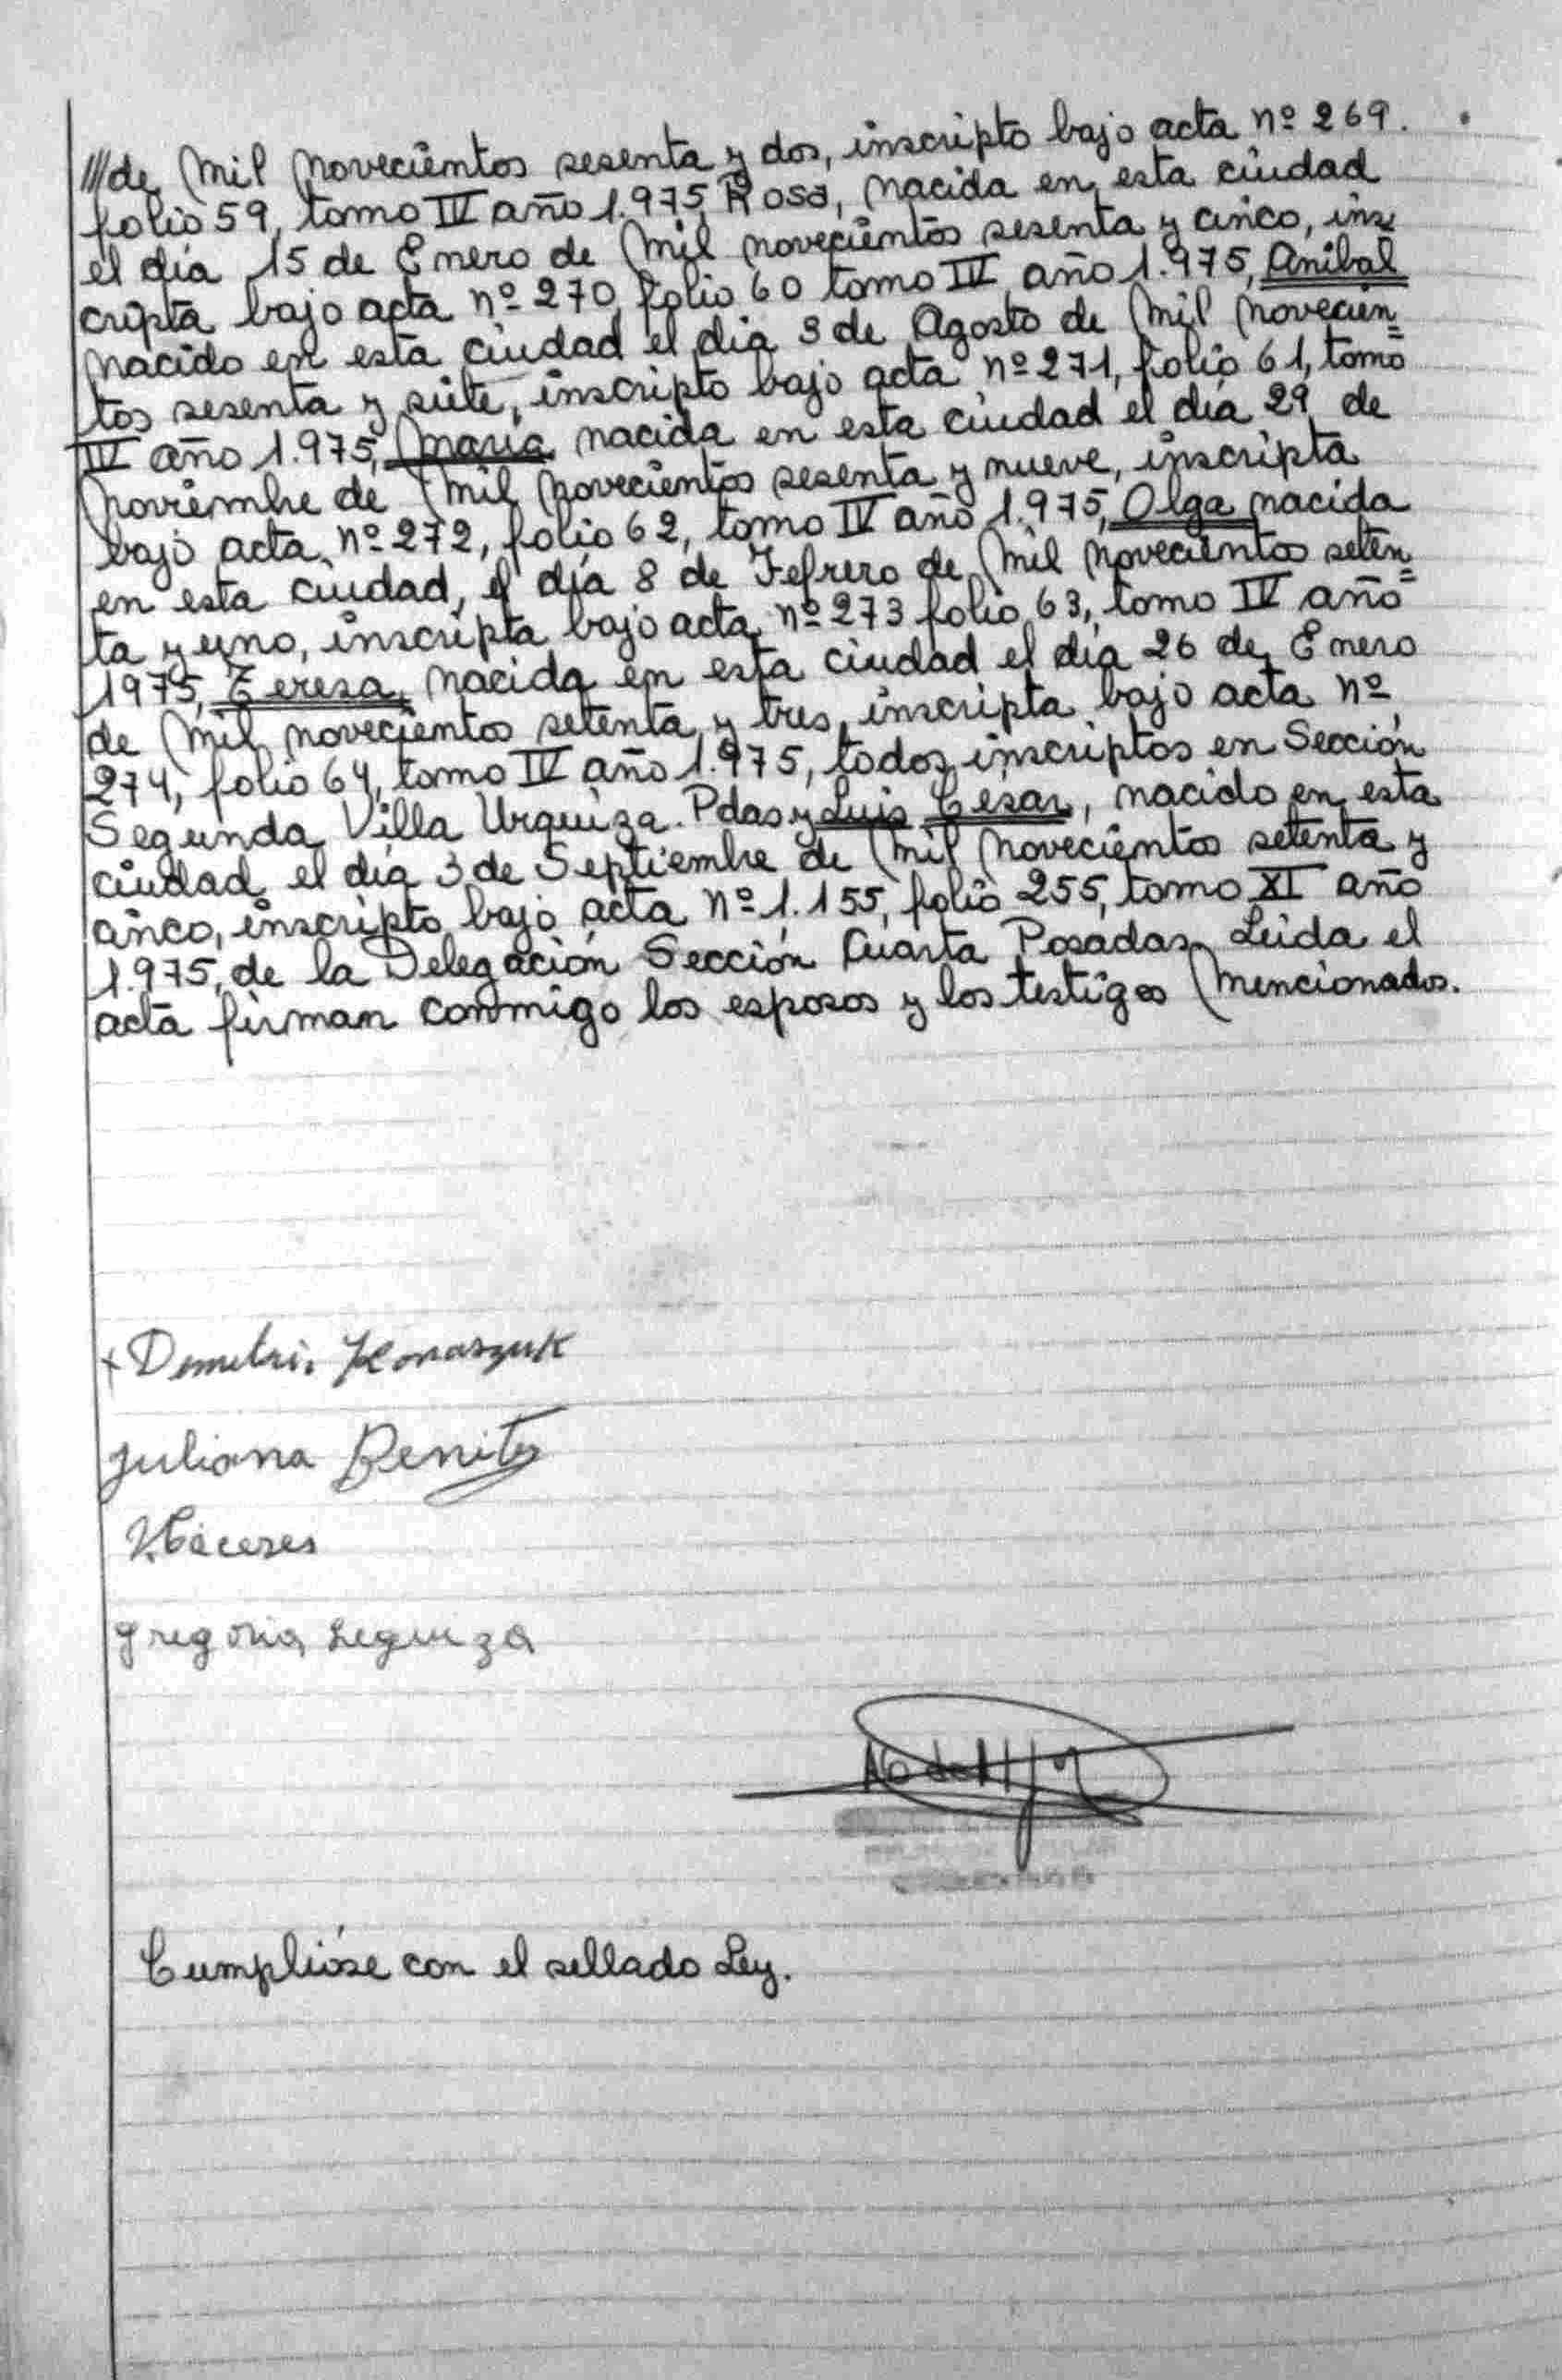 ///de Mil Novecientos sesenta y dos, inscripto bajo acta nº 269.
folio 59, tomo IV año 1.975, Rosa, nacida en esta ciudad
el día 15 de Enero de Mil novecientos sesenta y cinco, ins
cripta bajo acta nº 270, folio 60 tomo IV año 1.975, Anibal
nacido en esta ciudad el dia 3 de Agosto de Mil Novecien=
tos sesenta y siete, inscripto bajo acta nº 271, folio 61, tomo
IV año 1.975, Maria nacida en esta ciudad el día 29 de
Noviembre de Mil Novecientos sesenta y nueve, inscripta
bajo acta nº 272, folio 62, tomo IV año 1.975, Olga nacida
en esta ciudad, el día 8 de Febrero de Mil Novecientos seten=
ta y uno, inscripta bajo acta nº 273 folio 63, tomo IV año
1975, Teresa, nacida en esta ciudad el dia 26 de Enero
de Mil novecientos setenta y tres, inscripta bajo acta nº
274, folio 64, tomo IV año 1.975, todos inscriptos en Sección
Segunda Villa Urquiza. Pdas y Luis Cesar, nacido en esta
ciudad el día 3 de Septiembre de Mil Novecientos setenta y
cinco, inscripto bajo acta Nº 1.155, folio 255, tomo XI año
1.975, de la Delegación Sección Cuarta Posadas. Leida el
acta firman conmigo los esposos y los testigos Mencionados.
+ Demetrio Konaszuk
Juliana Benitez
V. Cáceres
Gregoria Leguiza
Cumplióse con el sellado Ley.